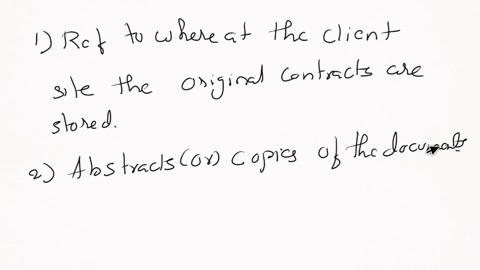 1) Ref to where at the client
site the original contracts are
stored.
2) Abstracts (or) copies of the documents